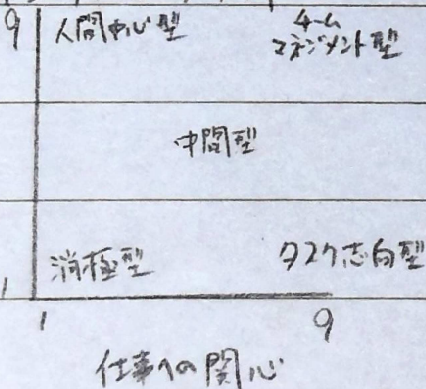 9 人間中心型 チーム
マネジメント型
中間型
消極型 タスク志向型
1
1 9
仕事への関心